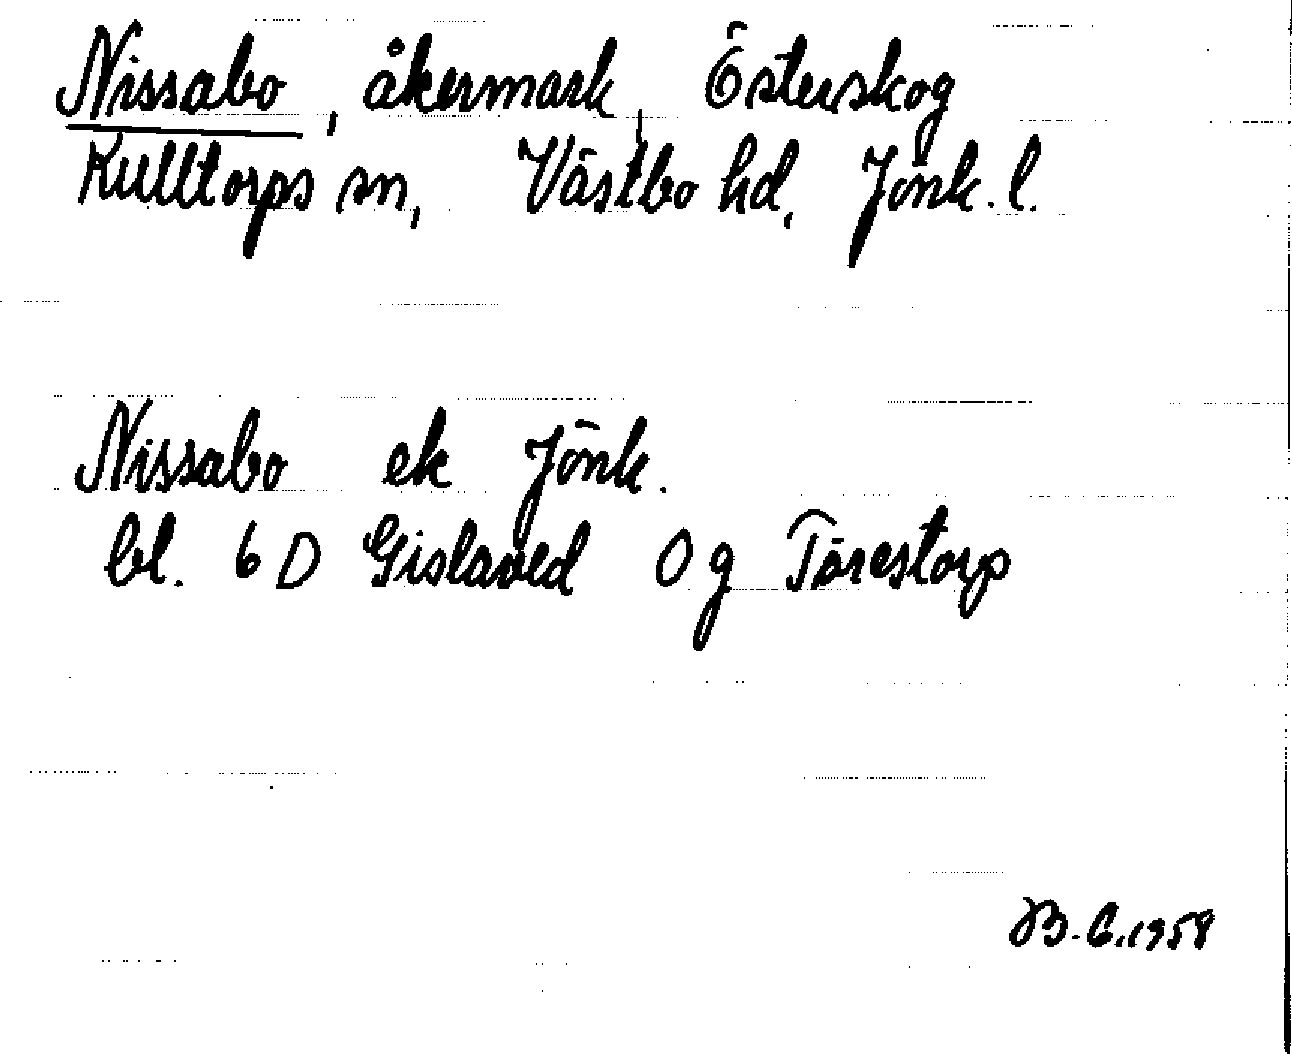 Nissabo, åkermark, Österskog
Kulltorps sn, Västbo hd, Jönk. l.
Nissabo ek Jönk.
bl. 6 D Gislaved 0 g Törestorp
B. E. 1958